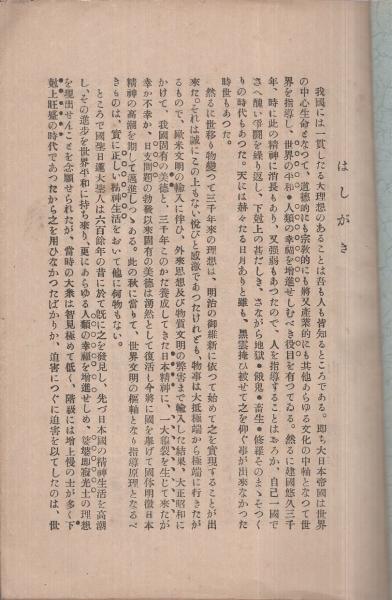 はしがき
我國には一貫したる大理想のあることは吾も人も皆知るところである。即ち大日本帝國は世界
の中心生命となつて、道德的にも宗敎的にも將又產業的にも其他あらゆる文化の中軸となつて世
界を指導し、世界の平和・人類の幸福を增進せしむべき役目を有つてゐる。然るに建國悠久三千
年、時に此の精神に消長もあり、又强弱もあつたので、人を指導することはおろか、自己一國で
さへ醜い爭鬪を繰り返し、下剋上の甚だしき、さながら地獄・餓鬼・畜生・修羅そのまゝそつく
りの時代もあつた。天には赫々たる日月ありと雖も、黑雲掩ひ被せて之を仰ぐ事が出來なかつた
時世もあつた。
然るに世移り物變つて三千年來の理想は、明治の御維新に依つて始めて之を實現することが出
來た。それは誠にこの上もない悅びと感激であつたけれども、物事は大抵極端から極端に行きたが
るもので、歐米文明の輸入に伴ひ、外來思想及び物質文明の弊害まで輸入した結果、大正昭和に
かけて、我國固有の美德と、三千年このかた養成してきた日本精神に、一大龜裂を生じて來たが
幸か不幸か、日支問題の勃發以來固有の美德は湧然として復活し今將に國を擧げて國體明徵日本
精神の高潮を期して邁進しつゝある。此の秋に當りて、世界文明の樞軸となり指導原理となるべ
きものは、實に正しい精神生活をおいて他に何物もない。
ところで國聖日蓮大聖人は六百餘年の昔に於て既に之を發見し、先づ日本國の精神生活を高潮
し、その進步を世界平和に持ち來り、更にあらゆる人類の幸福を增進せしめ、娑婆即寂光土の理想
を現出せんことを念願せられたが、當時の大衆は智見極めて低く、階級には增上慢の士が多く下
剋上旺盛の時代であつたから之を用ひなかつたばかりか、迫害につぐに迫害を以てしたのは、世